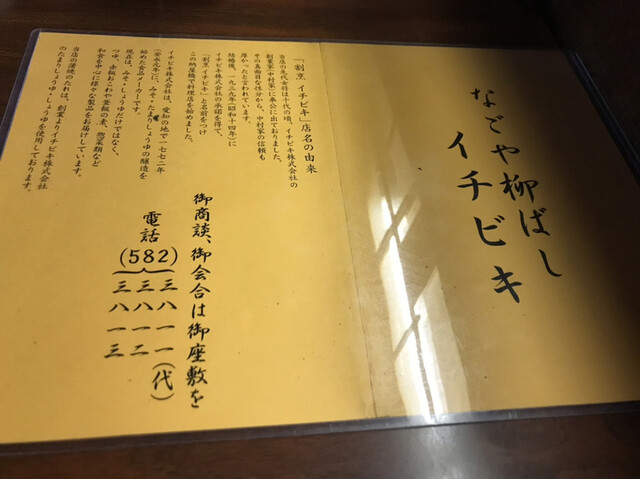 なごや柳ばし
イチビキ
「割烹 イチビキ」店名の由来
当店の先代女将は十代の頃、イチビキ株式会社の
創業家(中村家)に奉公に出ておりました。
その真面目な性分から、中村家の信頼も
厚かったと言われています。
結婚後、一九三九年(昭和十四年)に
イチビキ株式会社の承諾を得て、
「割烹 イチビキ」と名前をつけ
この納屋橋で料理店を始めました。
イチビキ株式会社は、愛知の地で一七七二年
(安永元年)に、みそ・たまりしょうゆの醸造を
始めた食品メーカーです。
現在は、みそ・しょうゆだけではなく、
つゆ、赤飯おこわや釜飯の素、惣菜類など
和食を中心に様々な製品をお届けしています。
当店の蒲焼のたれは、創業よりイチビキ株式会社
のたまりしょうゆ・しょうゆを使用しております。
御商談、御会合は御座敷を
電話(582)
三八一一(代)
三八一二
三八一三